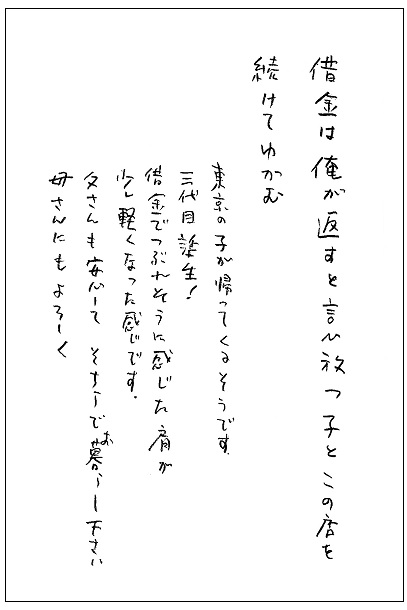 借金は俺が返すと言い放つ子とこの店を
続けてゆかむ
東京の子が帰ってくるそうです。
三代目誕生!
借金でつぶれそうに感じた肩が
少し軽くなった感じです。
父さんも安心して そちらでお暮らし下さい
母さんにもよろしく